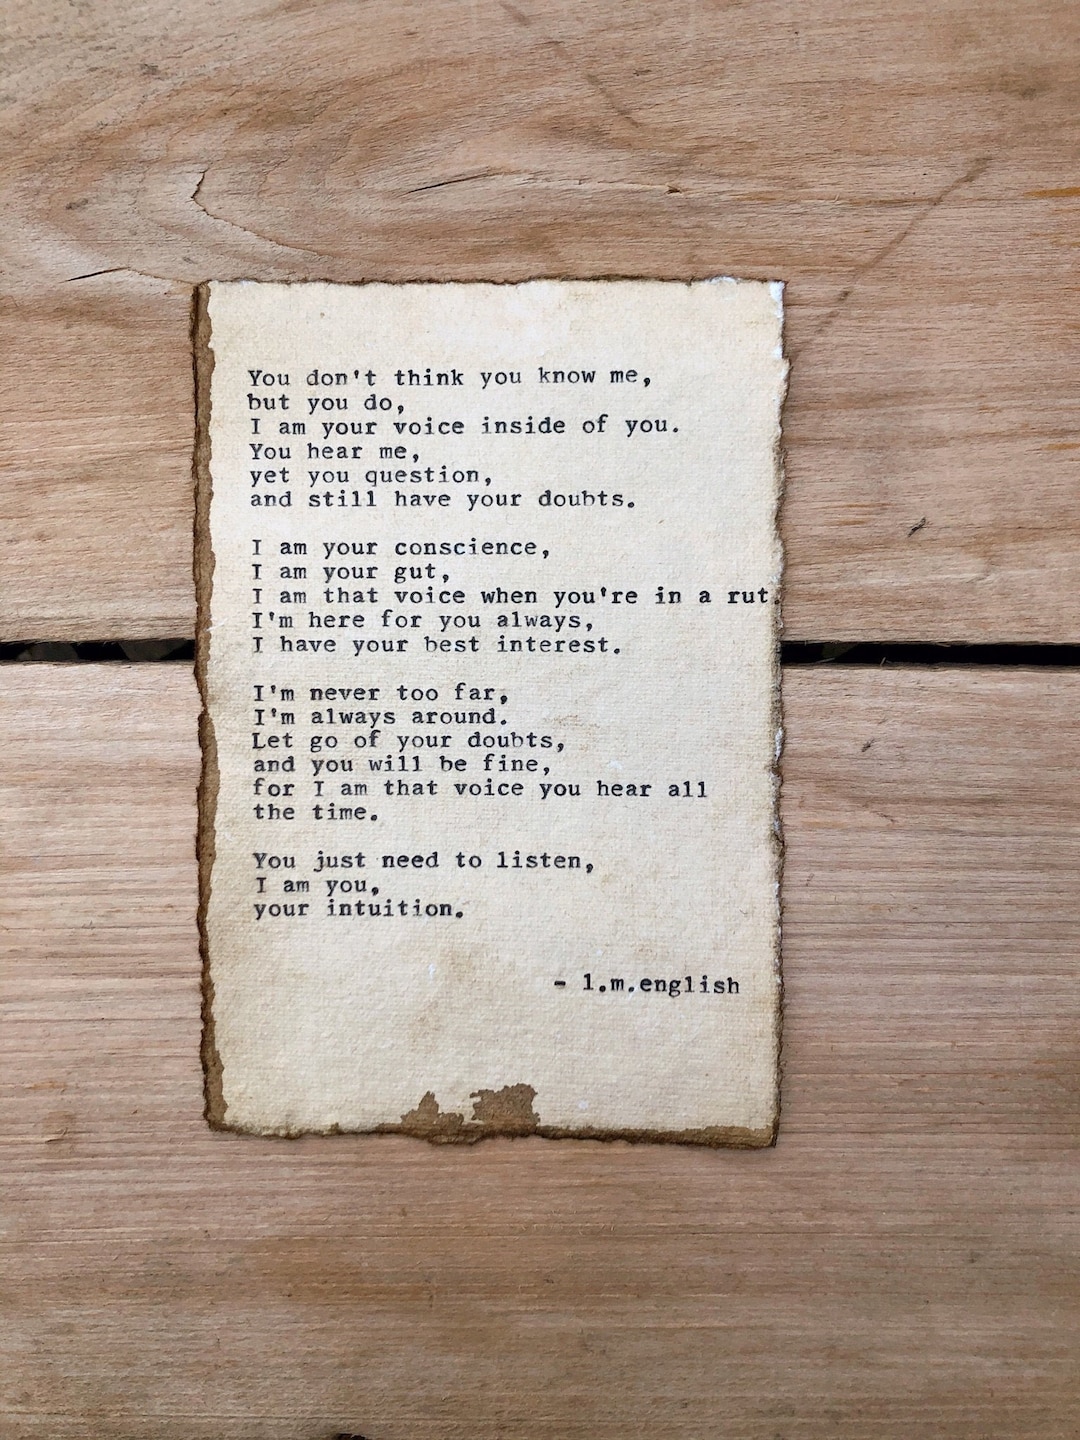 You don't think you know me,
but you do,
I am your voice inside of you.
You hear me,
yet you question,
and still have your doubts.
I am your conscience,
I am your gut,
I am that voice when you're in a rut
I'm here for you always,
I have your best interest.
I'm never too far,
I'm always around.
Let go of your doubts,
and you will be fine,
for I am that voice you hear all
the time.
You just need to listen,
I am you,
your intuition.
- l.m.english